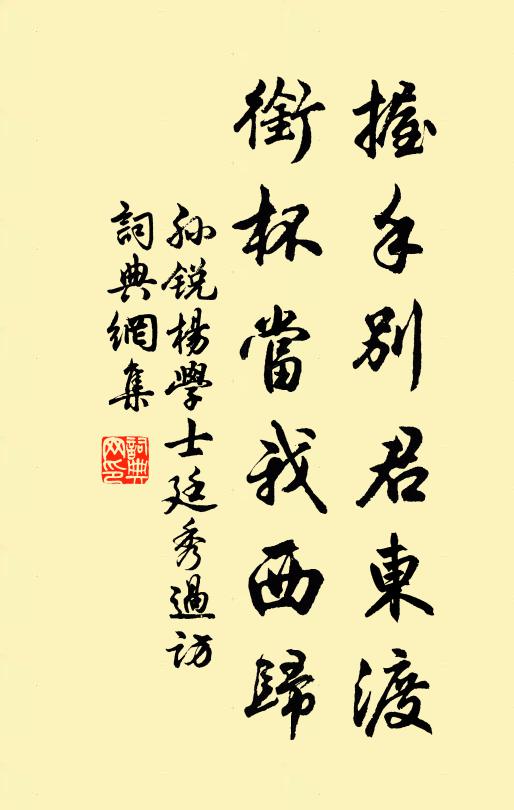 握手別君東渡
銜杯當我西歸
孫銳楊學士廷秀過訪
詞典網集
詞典網印